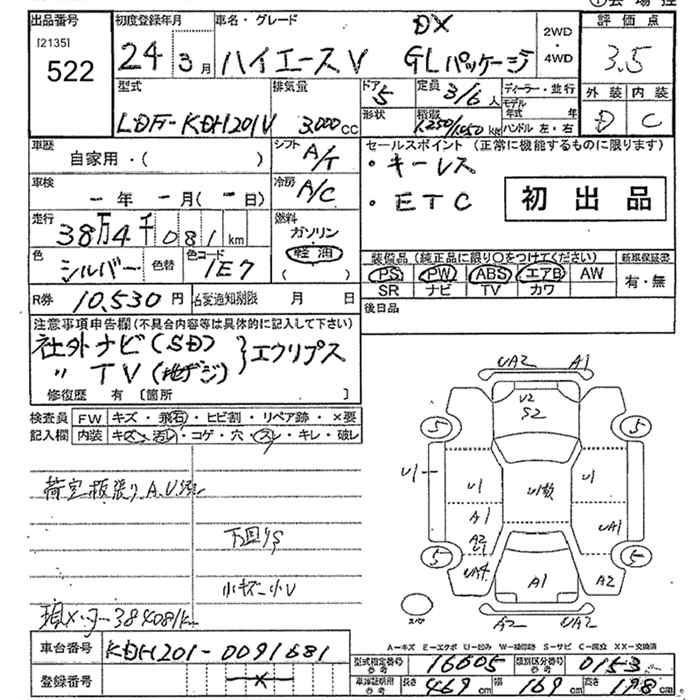 出品番号
[2135]
522
初度登録年月
24 3月
車名・グレード
ハイエースV
DX
GLパッケージ
2WD
・
4WD
評価点
3.5
外装 内装
D C
型式
LDF-KDH201V
排気量
3,000cc
ドア
5
形状
定員 3/6人
積載 1,250/1,050kg
ディーラー・並行
モデル年式 年
ハンドル 左・右
車歴
自家用・( )
シフト
A/T
車検
-年 -月(-日)
冷房
A/C
走行
38万4千081km
燃料
ガソリン
軽油
( )
色
シルバー
色替
色コード
1E7
R券 10,530円
名変通知期限 月 日
セールスポイント(正常に機能するものに限ります)
・キーレス
・ETC
初出品
装備品(純正品に限り○をつけてください)
PS PW ABS エアB AW
SR ナビ TV カワ
新車保証書
有・無
後日品
注意事項申告欄(不具合内容等は具体的に記入して下さい)
社外ナビ(SD)
〃 TV(地デジ) }エクリプス
修復歴 有〔箇所 〕
検査員記入欄
FW キズ・飛石・ヒビ割・リペア跡・×要
内装 キズ・汚レ・コゲ・穴・スレ・キレ・破レ
荷室板張りA.U
下回りS
小キズ小U
現メーター384081k
UA2 A1
U2
S2
5 5
U1 U1 U1数 U1
A1 UA1
A2
U1
5 5
UA4 A1 A2
A2 UA2
スペア
A=キズ E=エクボ U=凹み W=補修跡 S=サビ C=腐蝕 XX=交換済
車台番号 KDH201-0091681
登録番号 ×
型式指定番号 参考 16605
類別区分番号 参考 0153
車庫証明用 参考 長さ 469cm 幅 169cm 高さ 198cm